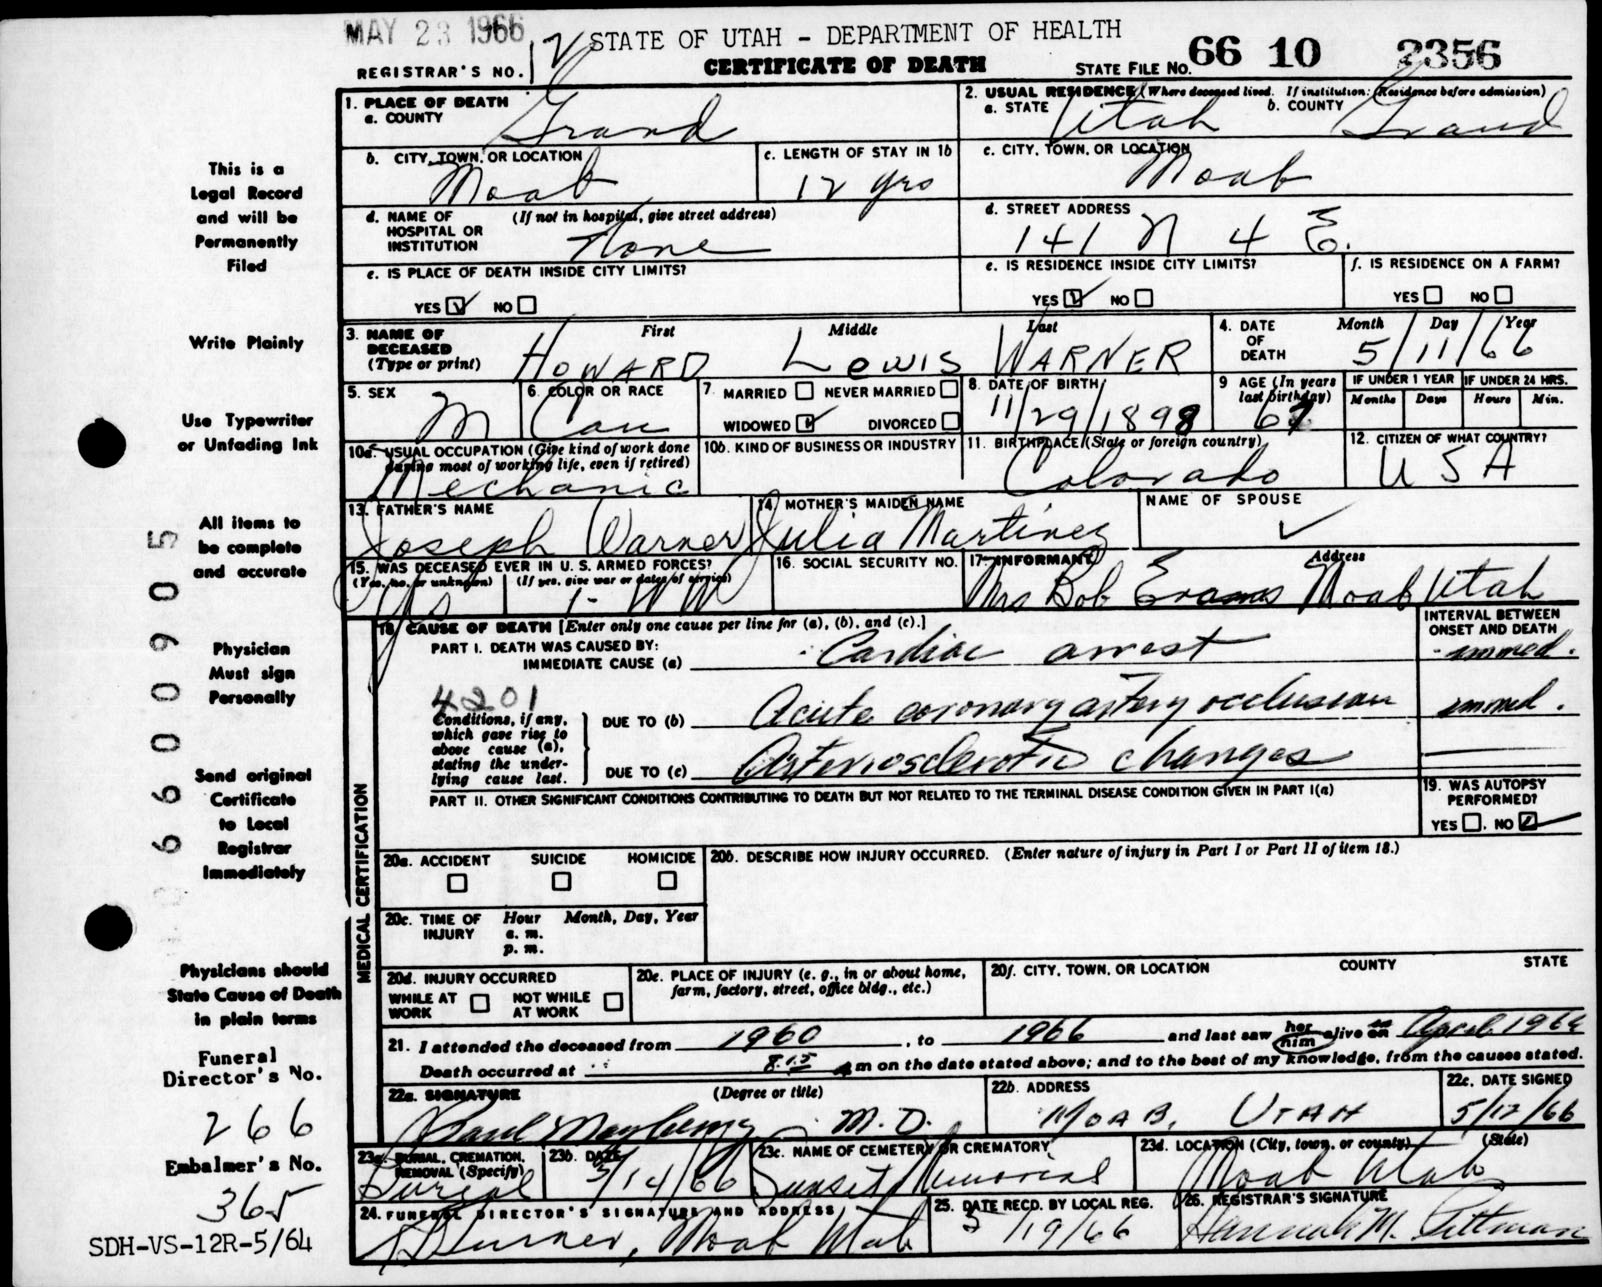 MAY 23 1966
STATE OF UTAH - DEPARTMENT OF HEALTH
REGISTRAR'S NO. 12
CERTIFICATE OF DEATH
STATE FILE NO. 66 10 2356
1. PLACE OF DEATH
a. COUNTY
Grand
2. USUAL RESIDENCE (Where deceased lived. If institution: Residence before admission)
a. STATE Utah b. COUNTY Grand
b. CITY, TOWN, OR LOCATION
Moab
c. LENGTH OF STAY IN 1b
12 yrs
c. CITY, TOWN, OR LOCATION
Moab
d. NAME OF HOSPITAL OR INSTITUTION (If not in hospital, give street address)
None
d. STREET ADDRESS
141 N 4 E.
e. IS PLACE OF DEATH INSIDE CITY LIMITS?
YES ☑ NO ☐
e. IS RESIDENCE INSIDE CITY LIMITS?
YES ☑ NO ☐
f. IS RESIDENCE ON A FARM?
YES ☐ NO ☐
3. NAME OF DECEASED (Type or print)
First Middle Last
HOWARD LEWIS WARNER
4. DATE OF DEATH
Month Day Year
5/11/66
5. SEX
M
6. COLOR OR RACE
Cau
7. MARRIED ☐ NEVER MARRIED ☐
WIDOWED ☑ DIVORCED ☐
8. DATE OF BIRTH
11/29/1898
9 AGE (In years last birthday)
67
IF UNDER 1 YEAR
Months Days
IF UNDER 24 HRS.
Hours Min.
10a. USUAL OCCUPATION (Give kind of work done during most of working life, even if retired)
Mechanic
10b. KIND OF BUSINESS OR INDUSTRY
11. BIRTHPLACE (State or foreign country)
Colorado
12. CITIZEN OF WHAT COUNTRY?
USA
13. FATHER'S NAME
Joseph Warner
14. MOTHER'S MAIDEN NAME
Julia Martinez
NAME OF SPOUSE
✓
15. WAS DECEASED EVER IN U. S. ARMED FORCES?
(Yes, no, or unknown) (If yes, give war or dates of service)
Yes 1 - WW
16. SOCIAL SECURITY NO.
17. INFORMANT Address
Mrs Bob Evans Moab Utah
MEDICAL CERTIFICATION
18. CAUSE OF DEATH [Enter only one cause per line for (a), (b), and (c).]
INTERVAL BETWEEN ONSET AND DEATH
PART I. DEATH WAS CAUSED BY:
IMMEDIATE CAUSE (a) Cardiac arrest immed.
4201
Conditions, if any, which gave rise to above cause (a), stating the underlying cause last.
DUE TO (b) Acute coronary artery occlusion immed.
DUE TO (c) Arteriosclerotic changes
PART II. OTHER SIGNIFICANT CONDITIONS CONTRIBUTING TO DEATH BUT NOT RELATED TO THE TERMINAL DISEASE CONDITION GIVEN IN PART I(a)
19. WAS AUTOPSY PERFORMED?
YES ☐. NO ☑
20a. ACCIDENT SUICIDE HOMICIDE
☐ ☐ ☐
20b. DESCRIBE HOW INJURY OCCURRED. (Enter nature of injury in Part I or Part II of item 18.)
20c. TIME OF INJURY
Hour Month, Day, Year
a. m.
p. m.
20d. INJURY OCCURRED
WHILE AT WORK ☐ NOT WHILE AT WORK ☐
20e. PLACE OF INJURY (e. g., in or about home, farm, factory, street, office bldg., etc.)
20f. CITY, TOWN, OR LOCATION COUNTY STATE
21. I attended the deceased from 1960, to 1966 and last saw her him alive on April 1966
Death occurred at 8:15 am on the date stated above; and to the best of my knowledge, from the causes stated.
22a. SIGNATURE (Degree or title)
Paul Mayberry M.D.
22b. ADDRESS
MOAB, UTAH
22c. DATE SIGNED
5/12/66
23a. BURIAL, CREMATION, REMOVAL (Specify)
Burial
23b. DATE
5/14/66
23c. NAME OF CEMETERY OR CREMATORY
Sunset Memorial
23d. LOCATION (City, town, or county) (State)
Moab Utah
24. FUNERAL DIRECTOR'S SIGNATURE AND ADDRESS
Moab Utah
25. DATE RECD. BY LOCAL REG.
5/19/66
26. REGISTRAR'S SIGNATURE
Hannah M. Pittman
This is a
Legal Record
and will be
Permanently
Filed
Write Plainly
Use Typewriter
or Unfading Ink
All items to
be complete
and accurate
Physician
Must sign
Personally
Send original
Certificate
to Local
Registrar
Immediately
Physicians should
State Cause of Death
in plain terms
Funeral
Director's No.
266
Embalmer's No.
365
SDH-VS-12R-5/64
6600905